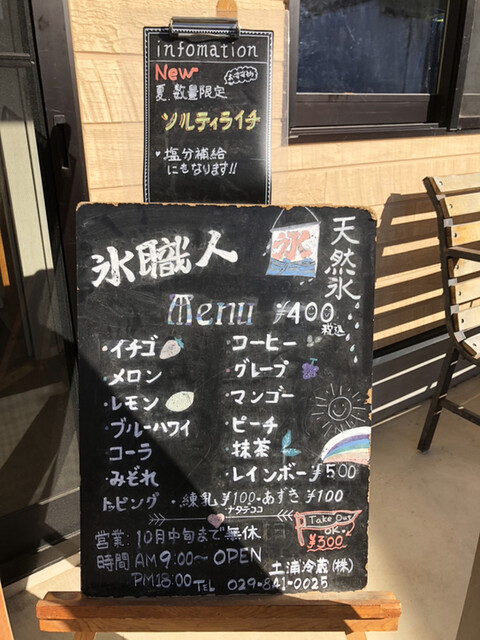 infomation
New おすすめ
夏、数量限定
ソルティライチ
・塩分補給
にもなります!!
氷職人
氷
天然氷
Menu ¥400
税込
・イチゴ
・メロン
・レモン
・ブルーハワイ
・コーラ
・みぞれ
・コーヒー
・グレープ
・マンゴー
・ピーチ
・抹茶
・レインボー ¥500
トッピング ・練乳 ¥100・あずき ¥100
・ナタデココ
営業:10月中旬まで無休
時間 AM 9:00〜 OPEN
PM 18:00
Take Out
OK.
¥300
土浦冷蔵(株)
TEL 029-841-0025